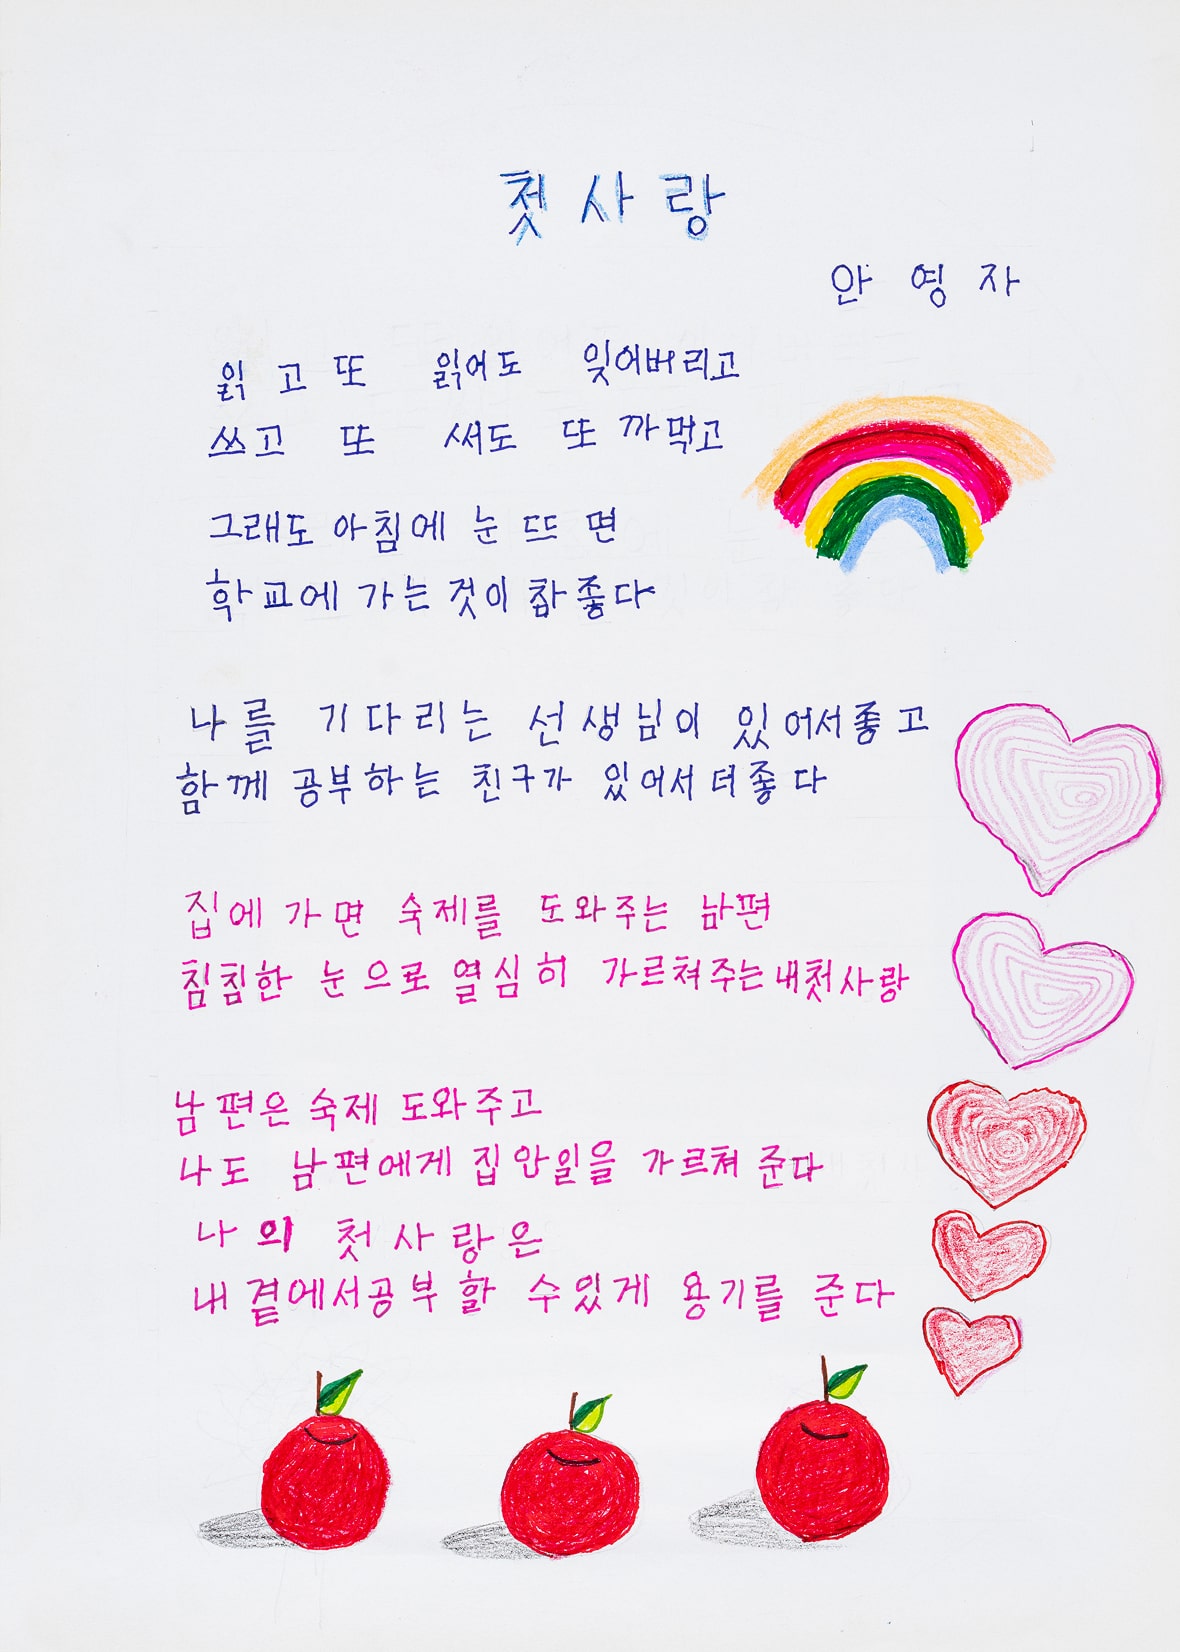 첫사랑
안영자
읽고 또 읽어도 잊어버리고
쓰고 또 써도 또 까먹고
그래도 아침에 눈 뜨면
학교에 가는 것이 참 좋다
나를 기다리는 선생님이 있어서 좋고
함께 공부하는 친구가 있어서 더 좋다
집에 가면 숙제를 도와주는 남편
침침한 눈으로 열심히 가르쳐주는 내 첫사랑
남편은 숙제 도와주고
나도 남편에게 집안일을 가르쳐 준다
나의 첫사랑은
내 곁에서 공부할 수 있게 용기를 준다